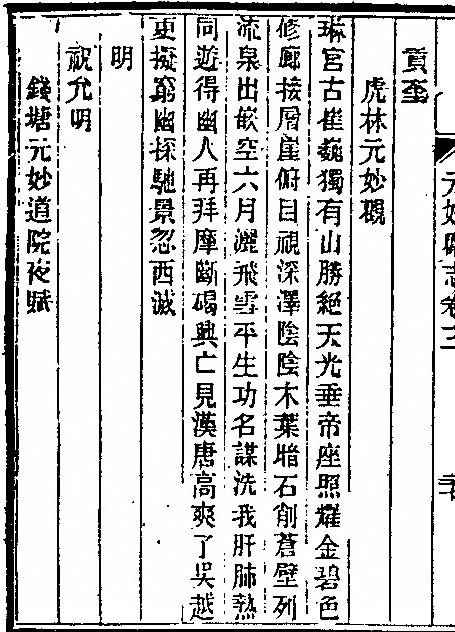 元妙觀志卷三
貢奎
虎林元妙觀
琳宮古崔巍獨有山勝絕天光垂帝座照耀金碧色
修廊接層崖俯目視深澤陰陰木葉暗石削蒼壁列
流泉出嵌空六月灑飛雪平生功名謀洗我肝肺熱
同遊得幽人再拜摩斷碣興亡見漢唐高爽了吳越
更擬窮幽探馳景忽西滅
明
祝允明
錢塘元妙道院夜賦